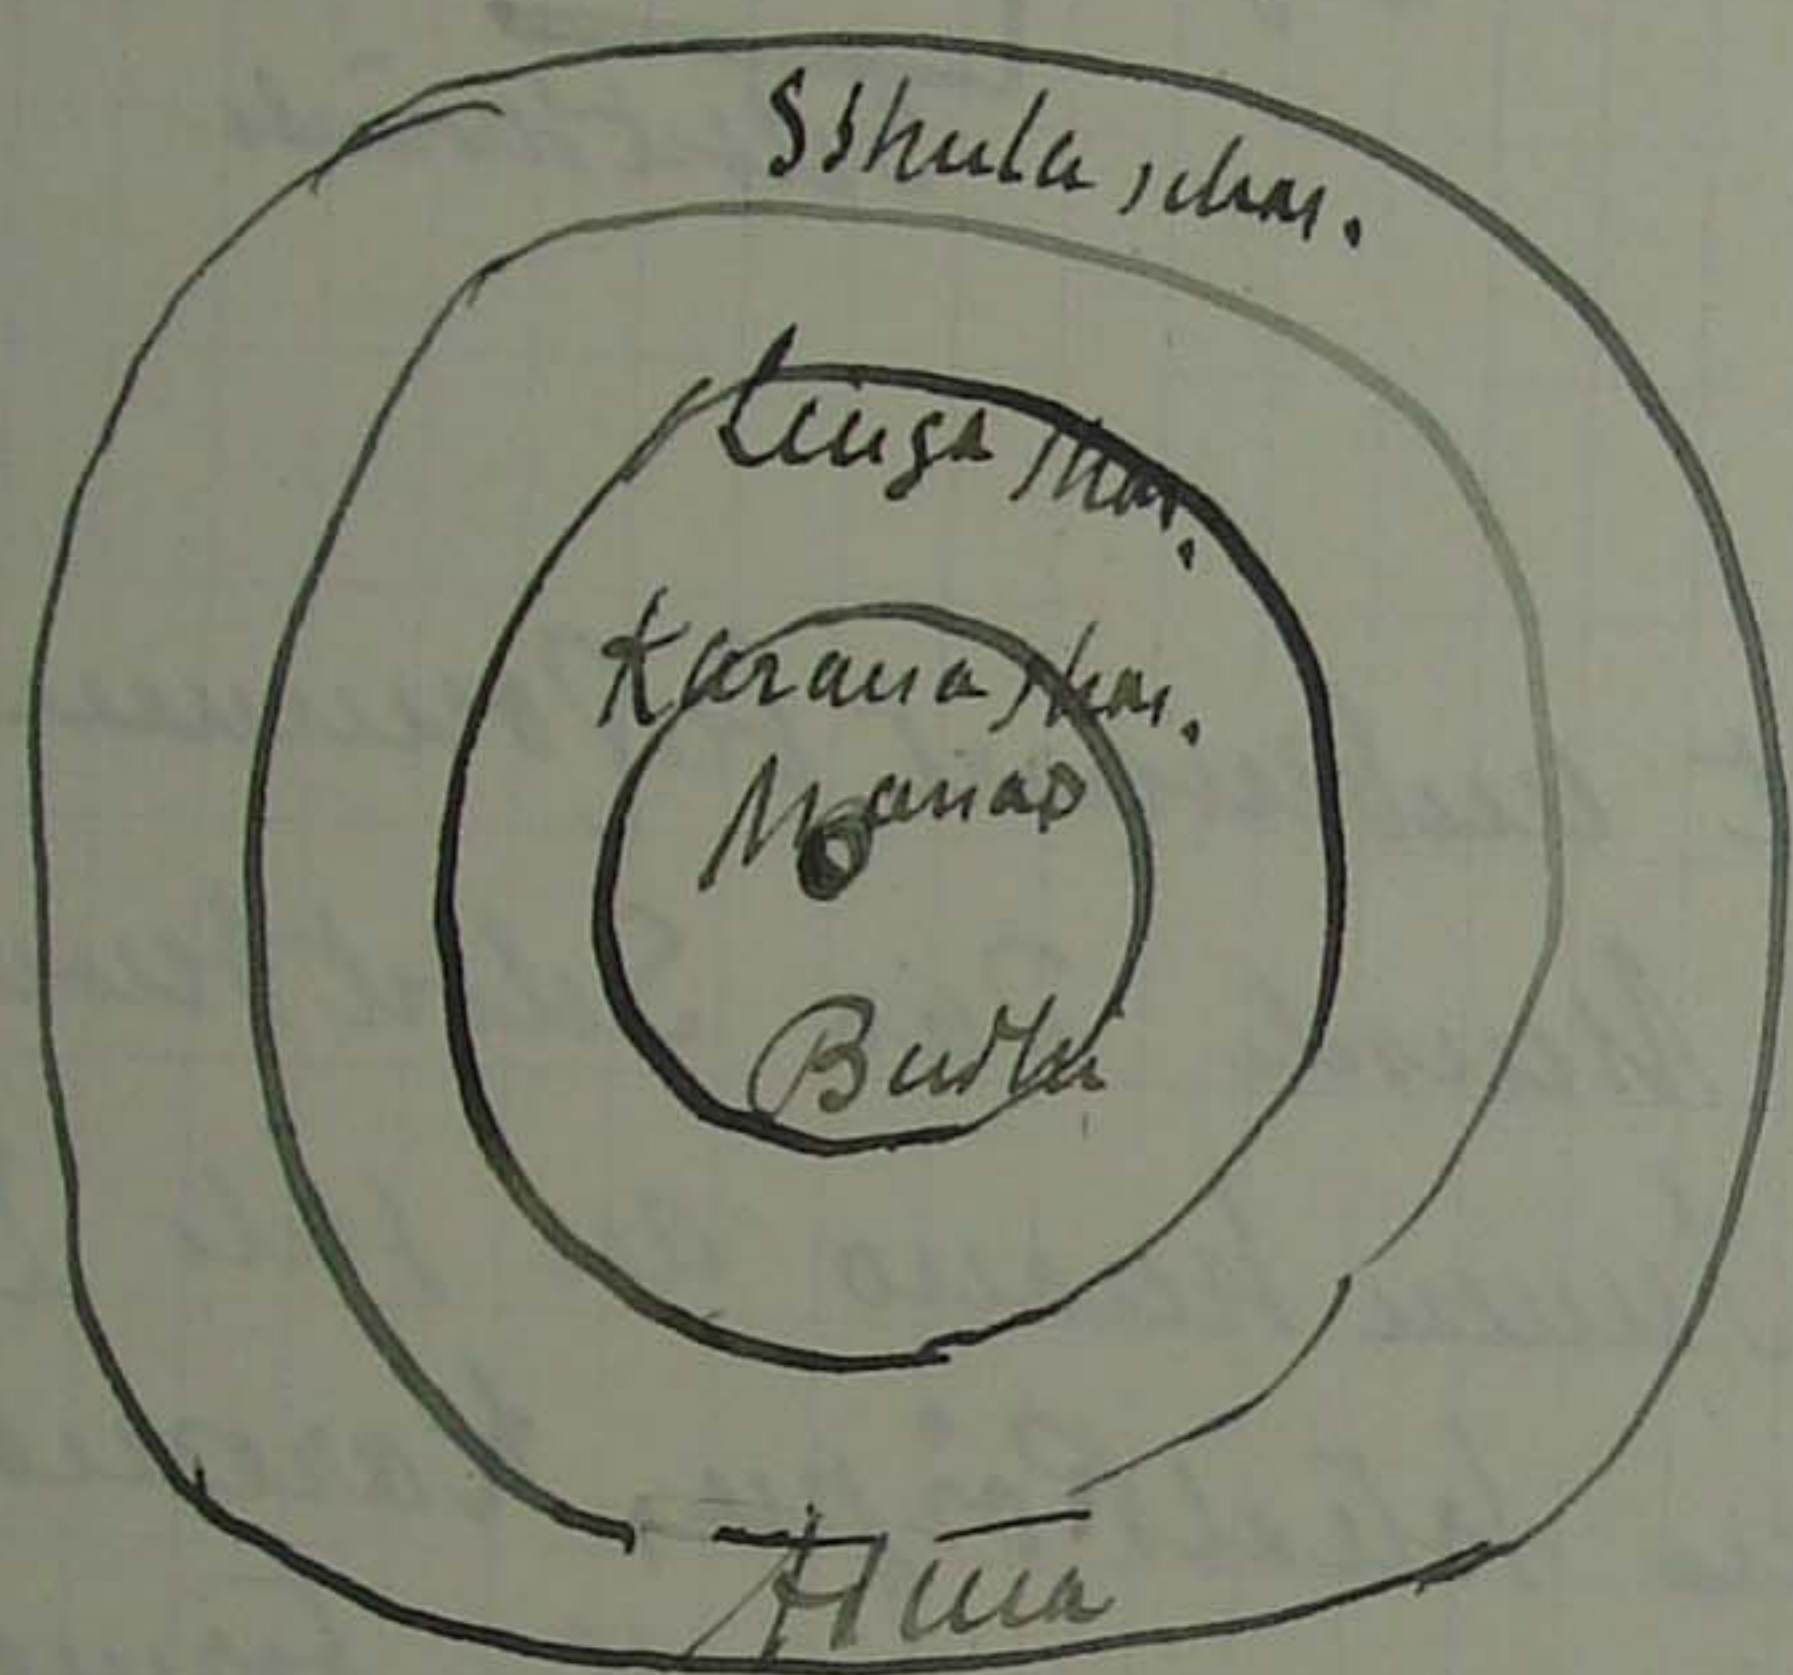 Sthula schar.
Linga shar.
Karana shar.
Manas
Budhi
Atma